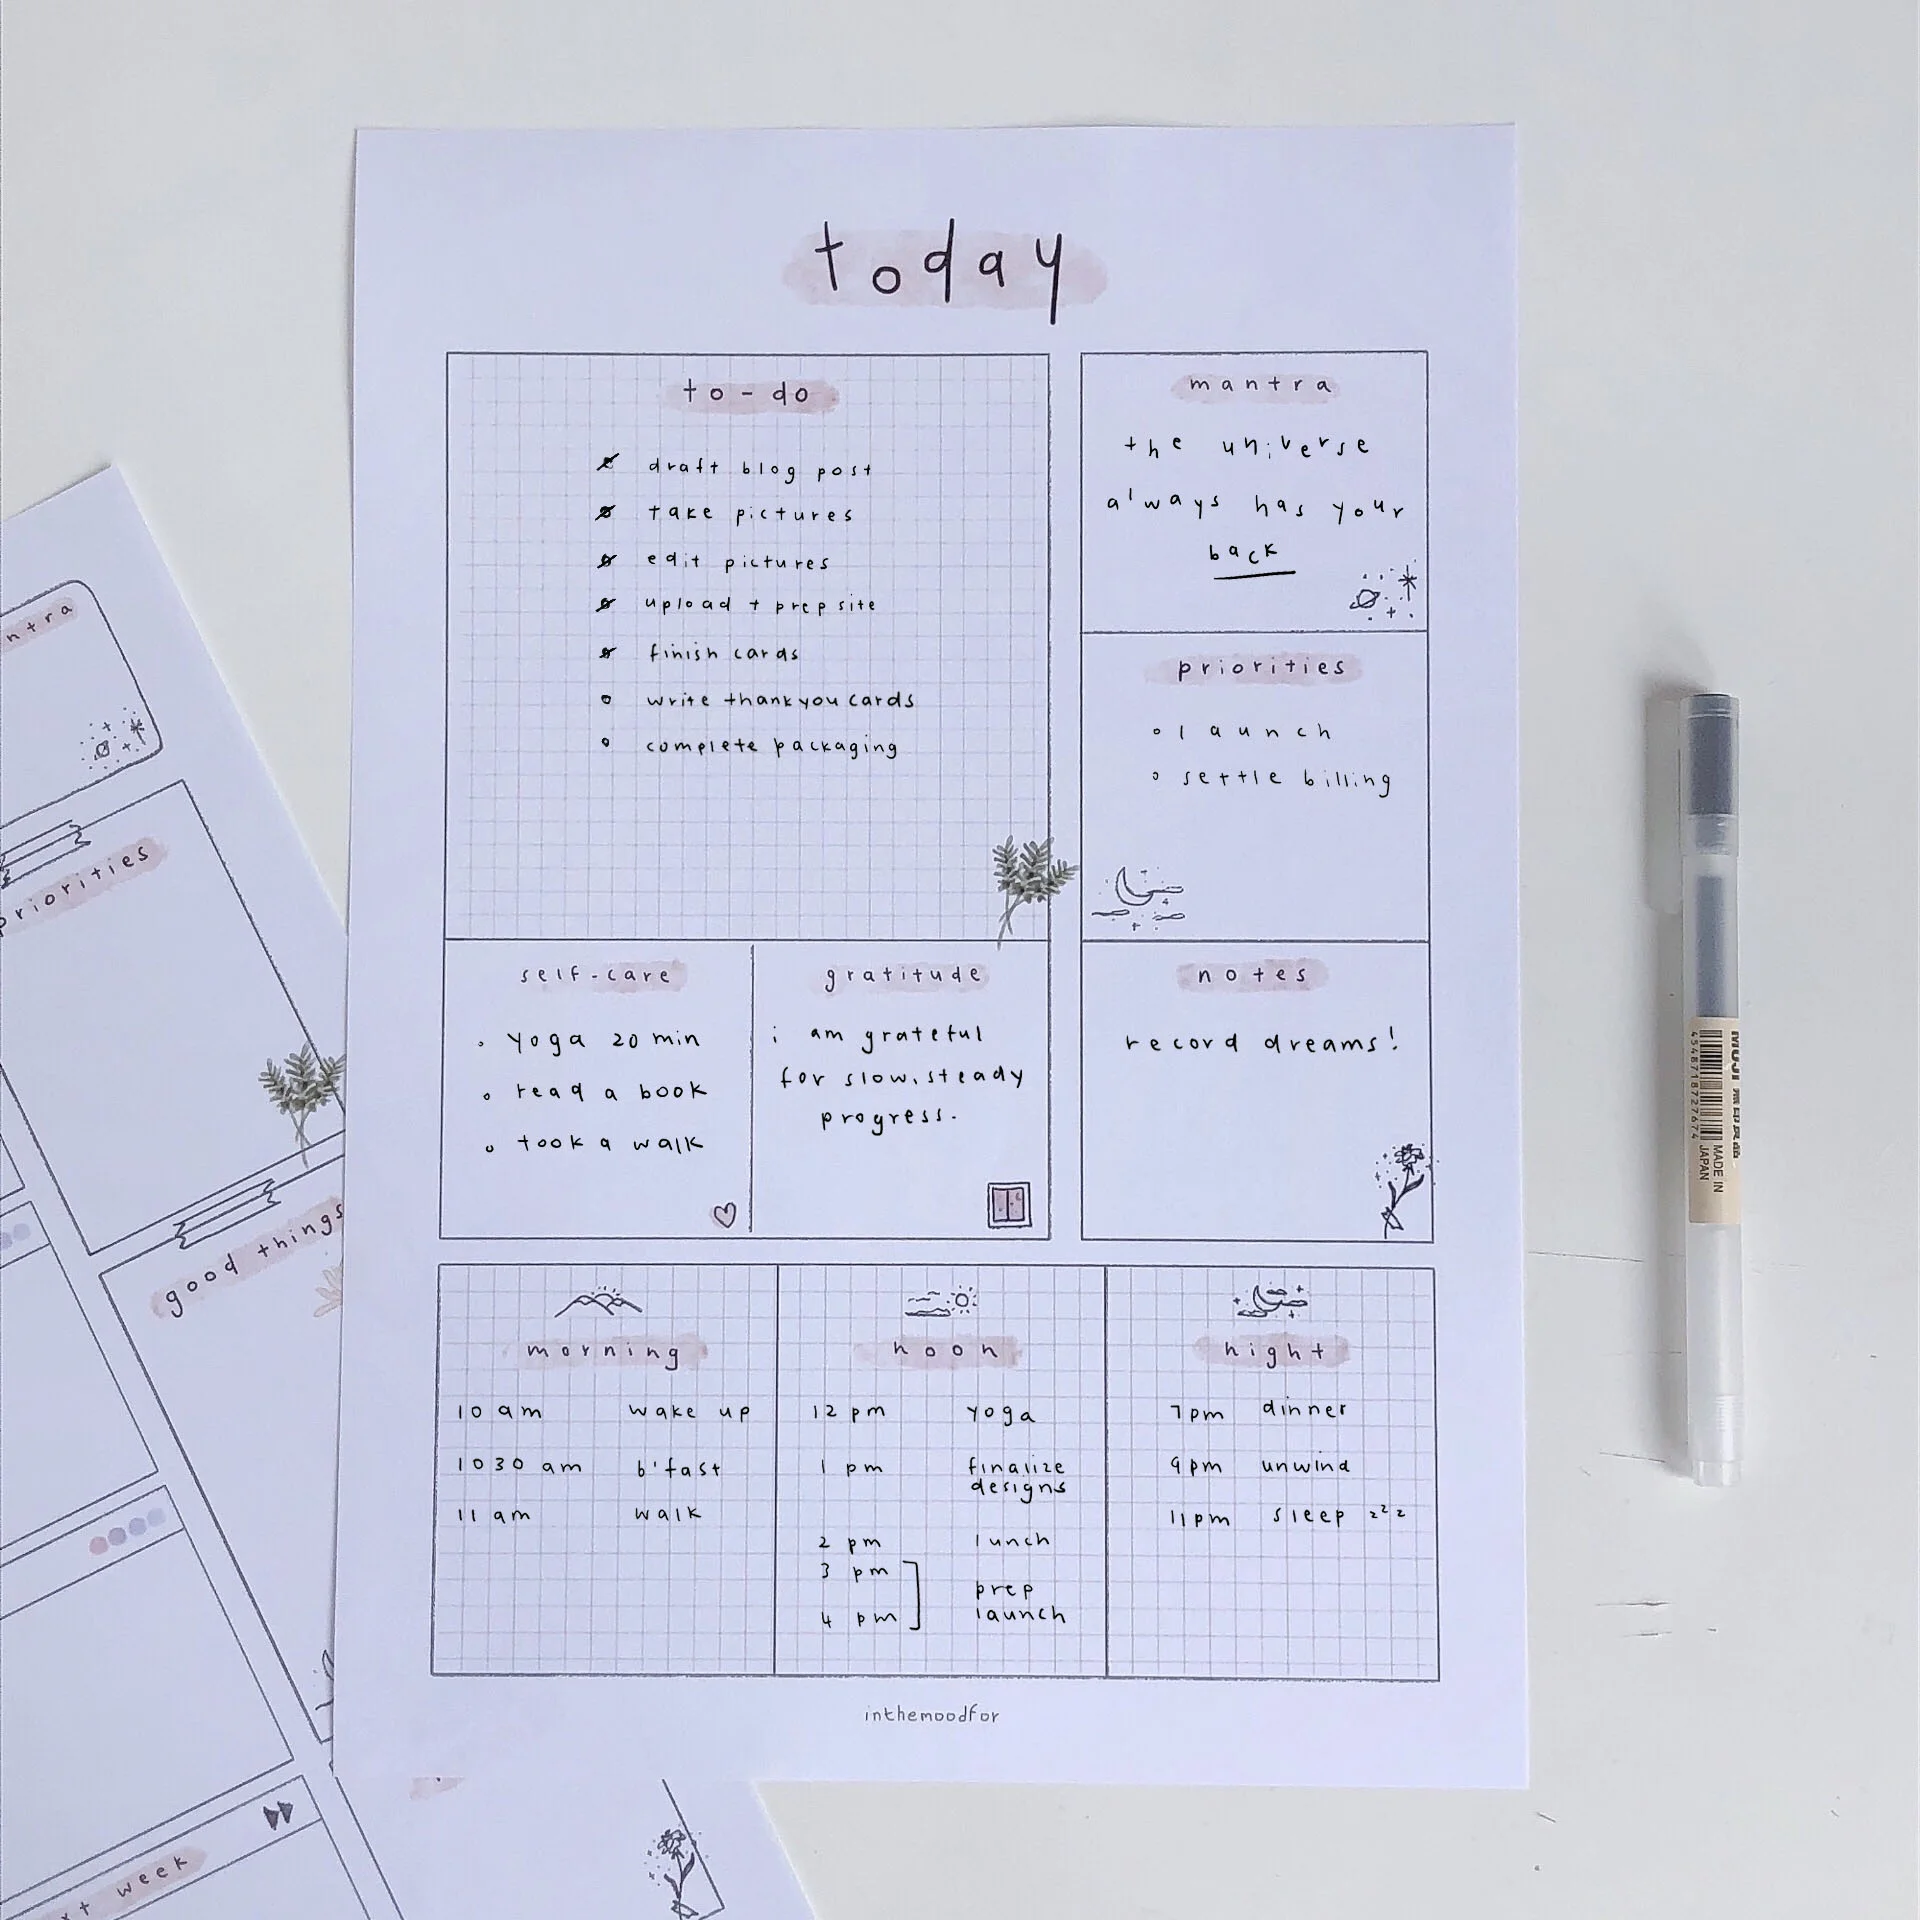 today
to-do
draft blog post
take pictures
edit pictures
upload + prep site
finish cards
write thank you cards
complete packaging
mantra
the universe
always has your
back
priorities
launch
settle billing
self-care
yoga 20 min
read a book
took a walk
gratitude
i am grateful
for slow, steady
progress.
notes
record dreams!
morning
10 am wake up
10 30 am b'fast
11 am walk
noon
12 pm yoga
1 pm finalize
designs
2 pm lunch
3 pm
4 pm
prep
launch
night
7pm dinner
9pm unwind
11pm sleep zzz
inthemoodfor
ntra
priorities
good things
xt week
MUJI 無印良品
4548718727674
MADE IN
JAPAN